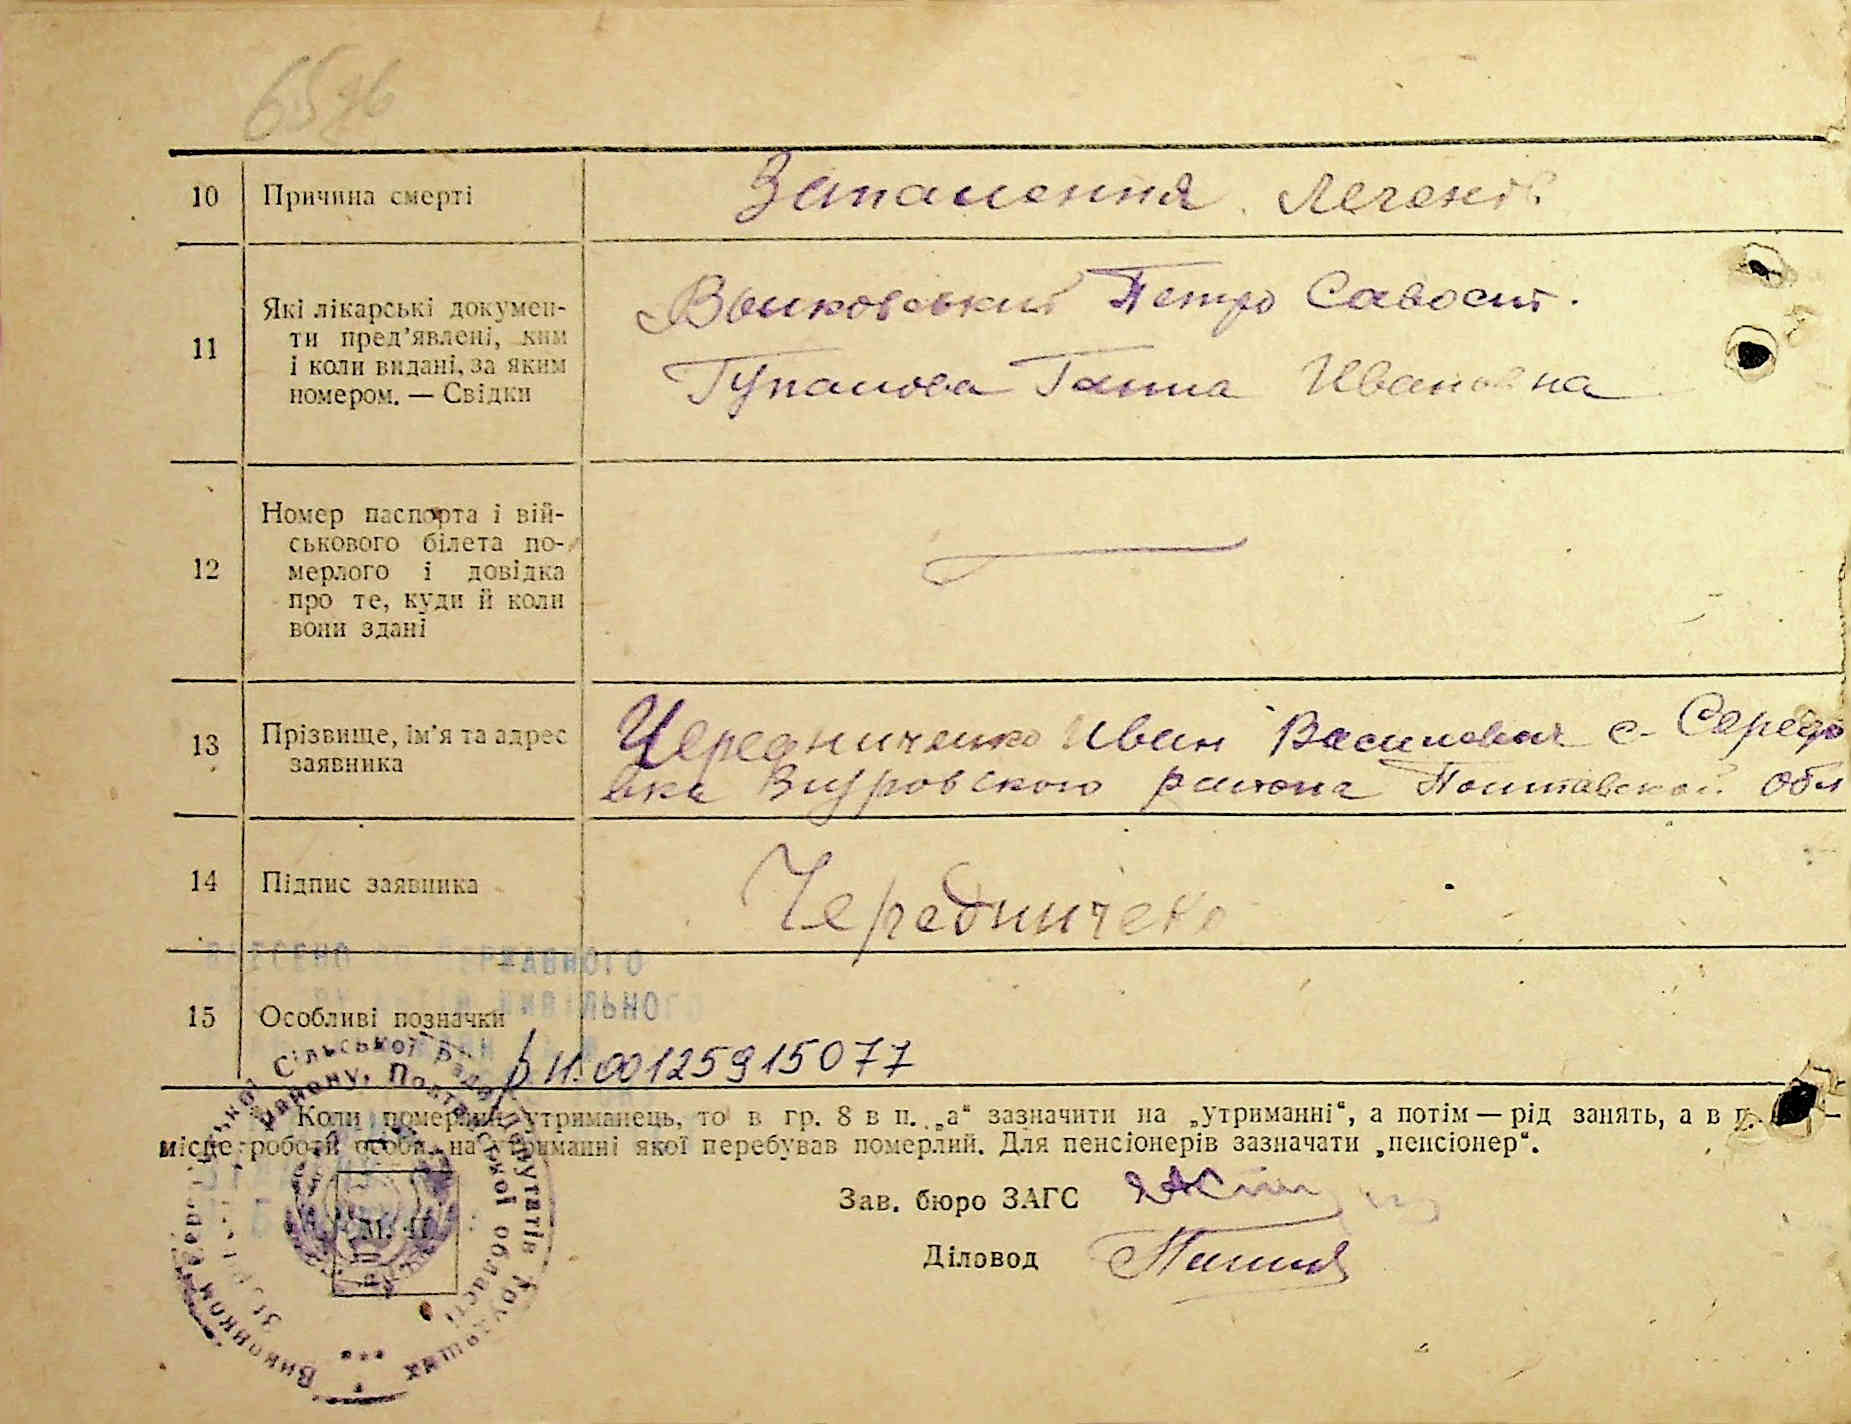 10 Причина смерті Запалення легенів
11 Які лікарські докумен-
ти пред’явлені, ким
і коли видані, за яким
номером. — Свідки
Петро Савост.
Гупалова Ганна Ивановна
12 Номер паспорта і вій-
ськового білета по-
мерлого і довідка
про те, куди й коли
вони здані
13 Прізвище, ім’я та адрес
заявника
Чередниченко Иван Василович с. Середо
вка Згуровского района Полтавской обл
14 Підпис заявника Чередничеко
ДЕРЖАВНОГО
ЦИВІЛЬНОГО
15 Особливі позначки
н. 00125915077
Коли померлий утриманець, то в гр. 8 в п. „а“ зазначити на „утриманні“, а потім — рід занять, а в п.
місце роботи особи, на утриманні якої перебував померлий. Для пенсіонерів зазначати „пенсіонер“.
Зав. бюро ЗАГС
Діловод
М. П.
Виконком Сільської Ради Депутатів Трудящих
району, Полтавської області